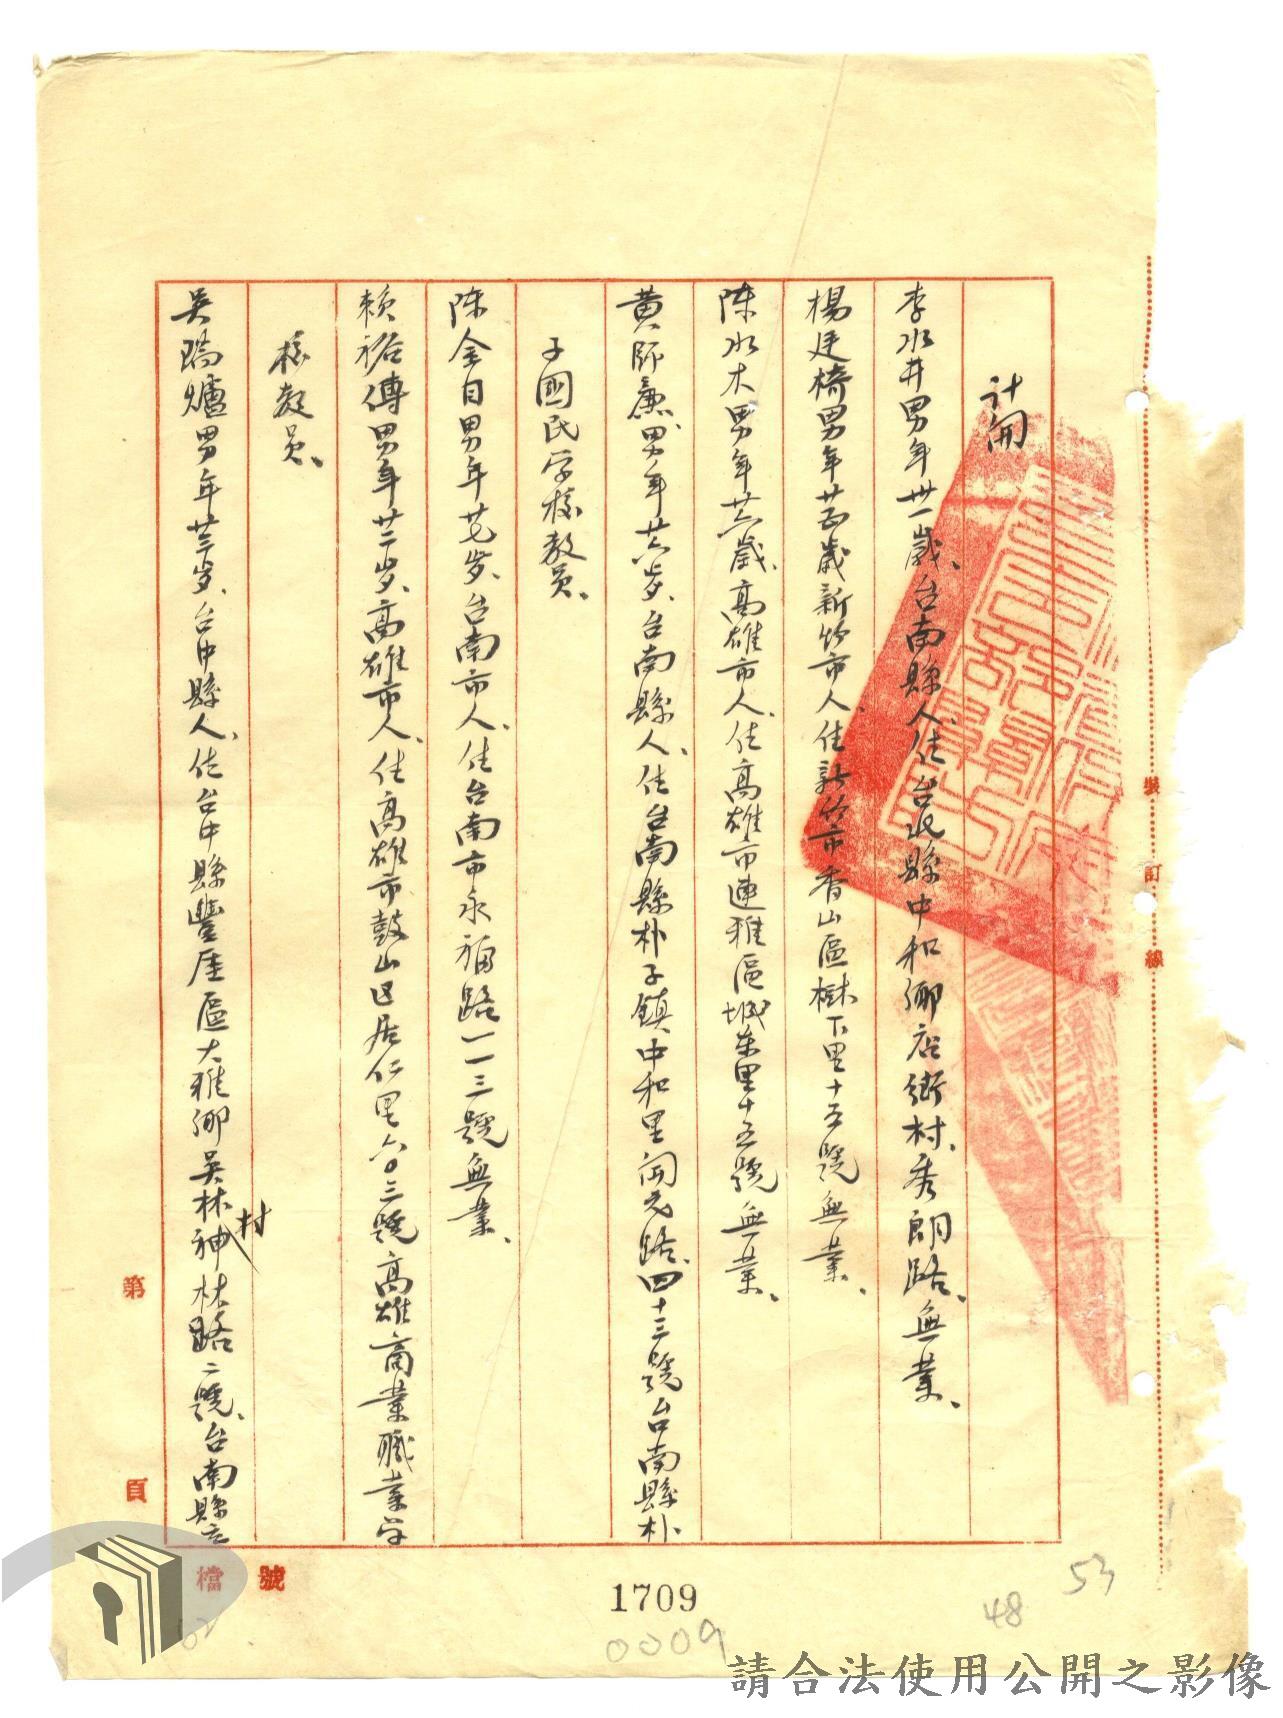 計開
李水井男年卅一歲、台南縣人、住台北縣中和鄉店街村、秀朗路、無業、
楊廷椅男年廿五歲新竹市人、住新竹市香山區樹下里十五號無業、
陳水木男年廿六歲、高雄市人、住高雄市連雅區城東里十五號無業、
黃師廉、男年廿六歲、台南縣人、住台南縣朴子鎮中和里開元路、四十三號台南縣朴
子國民学校教員、
陈金目男年廿七歲、台南市人、住台南市永福路一一三號無業、
賴裕傳男年廿二歲、高雄市人、住高雄市鼓山区居仁里六〇三號高雄商業職業学
校教員、
吳瑞爐男年廿三歲、台中縣人、住台中縣豐原區大雅鄉吳林神村林路二號、台南縣立
裝訂線
第 頁
檔號
1709
0009
48
53
請合法使用公開之影像